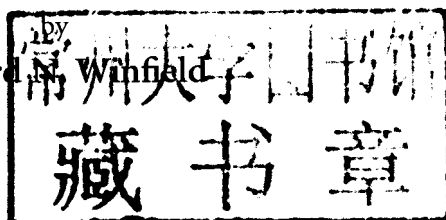 by
rd N. Winfield
常州大学图书馆
藏书章